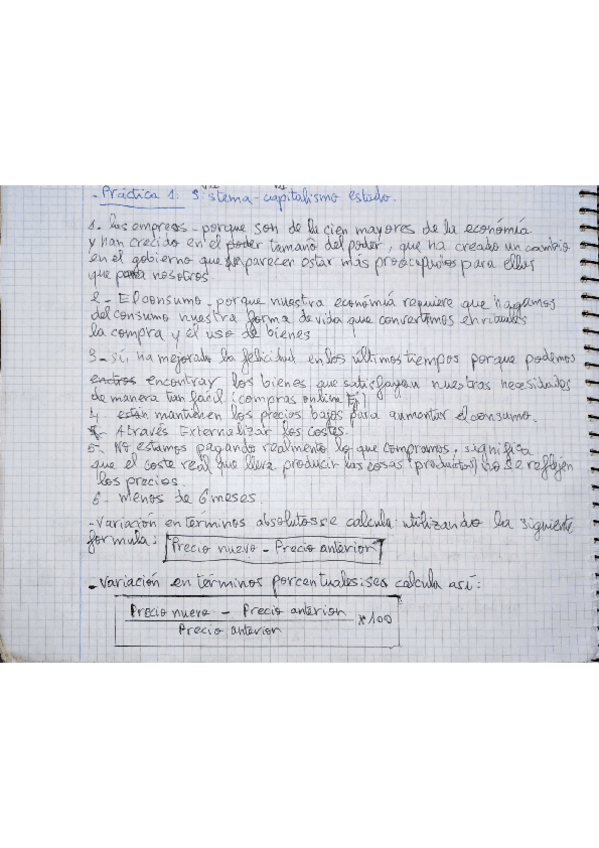 - Práctica 1: Sistema-capitalismo estado.
1- las empreas - porque son de la cien mayores de la económía
y han crecido en el poder tamaño del poder, que ha creado un cambio
en el gobierno que parecer estar más preocupados para ellas
que para nosotros.
2 - El consumo - porque nuestra económia requiere que hagamos
del consumo nuestra forma de vida que convertimos en rituales
la compra y el uso de bienes
3 - Sí, ha mejorado la felicidad en los últimos tiempos porque podemos
encontrar los bienes que satisfagan nuestras necesidades
de manera tan fácil (compras online Ej)
4 están mantienen los precios bajos para aumentar el consumo.
- Através Externalizar los costes.
5- No estamos pagando realmento lo que compramos, significa
que el coste real que lleva producir las cosas (productos) no se reflejen
los precios.
6- menos de 6 meses.
- Variación en términos absolutos se calcula utilizando la siguiente
formula: Precio nuevo - Precio anterior
- Variación en términos porcentuales: se calcula así:
Precio nuevo - Precio anterior
x 100
Precio anterior